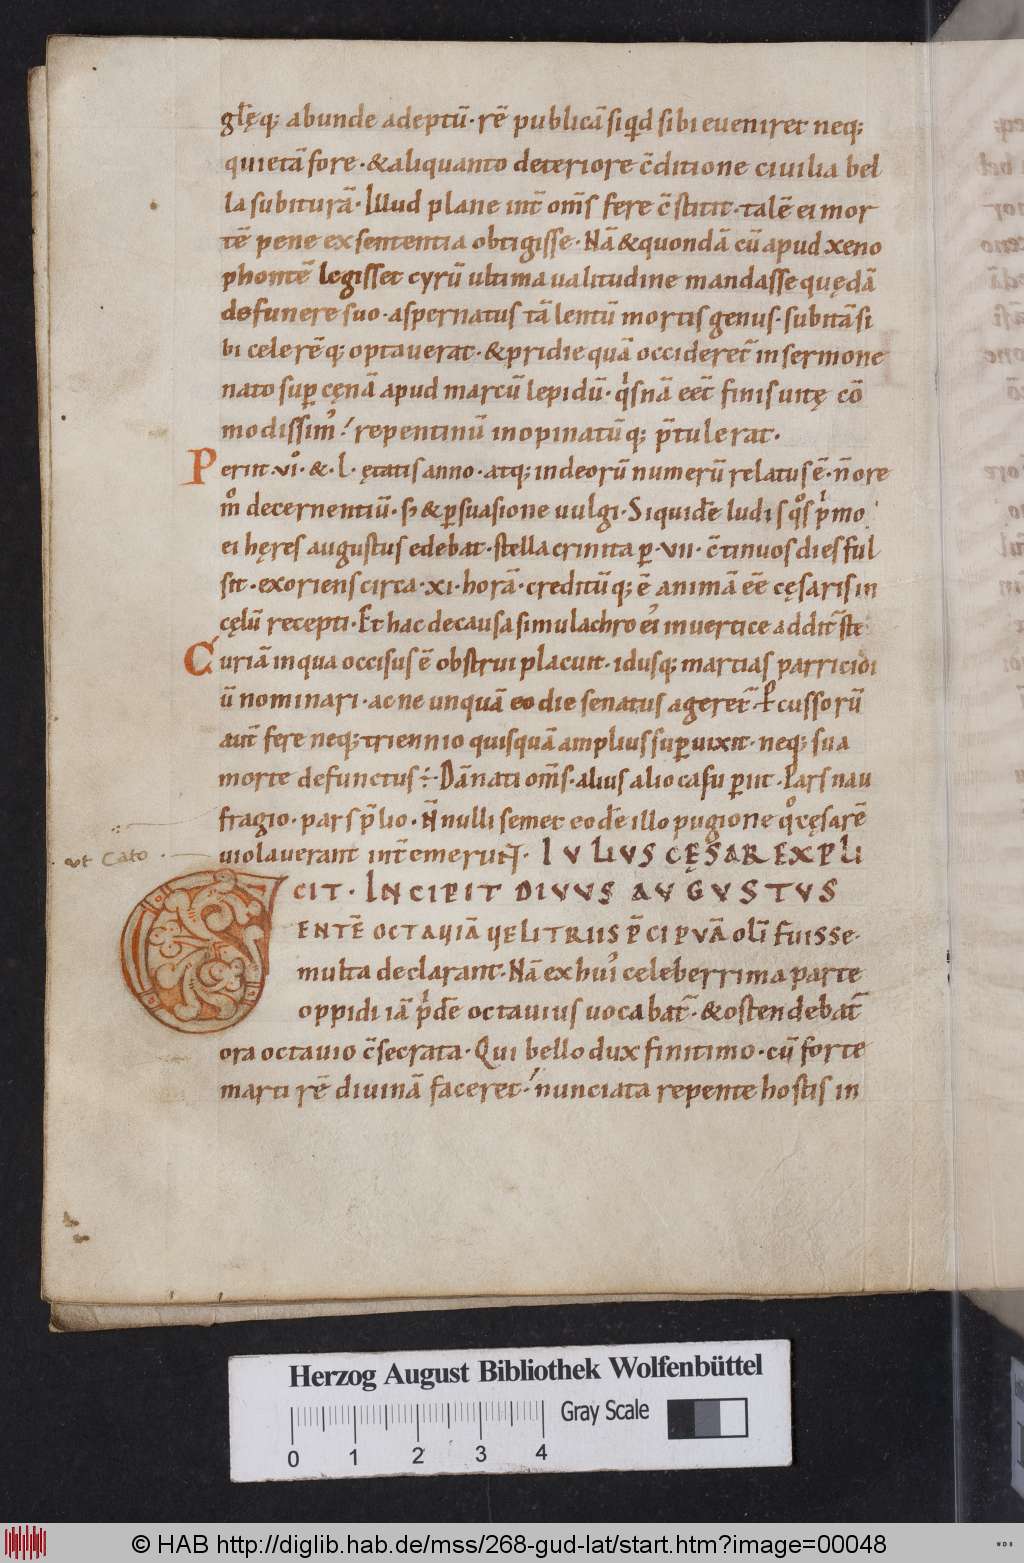 glęq; abunde adeptū· rē publicā siqd sibi eueniret neq;
quietā fore· &aliquanto deteriore c̄ditione ciuilia bel
la subiturā· Illud plane int̄ om̄s fere c̄stitit· talē ei mor
tē pene ex sententia obtigisse· Nā &quondā cū apud xeno
phontē legisset cyrū ultima ualitudine mandasse quędā
defunere suo· aspernatus tā lentū mortis genus· subitā si
bi celerēq; optauerat· &pridie quā occideret̄ in sermone
nato sup cęnā apud marcū lepidū· qisnā eēt finis uitę cō
modissim᾽! repentinū inopinatūq; p̄tulerat·
Perint· vi°· &· l· ętatis anno· atq; indeorū numerū relatus ē· n̄ ore
m° decernentiū· s; &p̱suasione uulgi· Siquidē ludis qos pimo
ei hęres augustus edebat· stella crinita p̱· vii· c̄tinuos dies ful
sit· exoriens circa· xi· horā· creditūq; ē animā eē cęsaris in
cęlū recepti· Et hac de causa simulachro ei᾽ in uertice addit̄ ste
Curiā in qua occisus ē obstrui placuit· idusq; martias parricidi
ū nominari· ac ne unquā eo die senatus ageret̄· P̱cussorū
aūt fere neq; triennio quisquā amplius sup̱uixit· neq; sua
morte defunctus÷ Dānati om̄s· alius alio casu p̱iit· Pars nau
fragio· pars p̄lio· N̄nulli semet eodē illo pugione qo cęsarē
uiolauerant int̄emerunt̄· IVLIVS CĘSAR EXPLI
ut Cato
CIT· INCIPIT DIVVS AVGVSTVS
GENTĒ OCTAVIĀ VELITRIIS P̄CIPVĀ olī fuisse·
multa declarant· Nā ex hui᾽ celeberrima parte
oppidi iā pidē octauius uocabat̄· &ostendebat̄
ora octauio c̄secrata· Qui bello dux finitimo· cū forte
marti rē diuinā faceret! nunciata repente hostis in
Herzog August Bibliothek Wolfenbüttel
Gray Scale
0 1 2 3 4
© HAB http://diglib.hab.de/mss/268-gud-lat/start.htm?image=00048